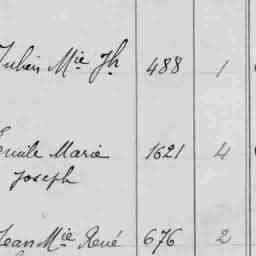 Julien Mie Jh 488 1
Emile Marie 1621 4
Joseph
Jean Mie René 676 2